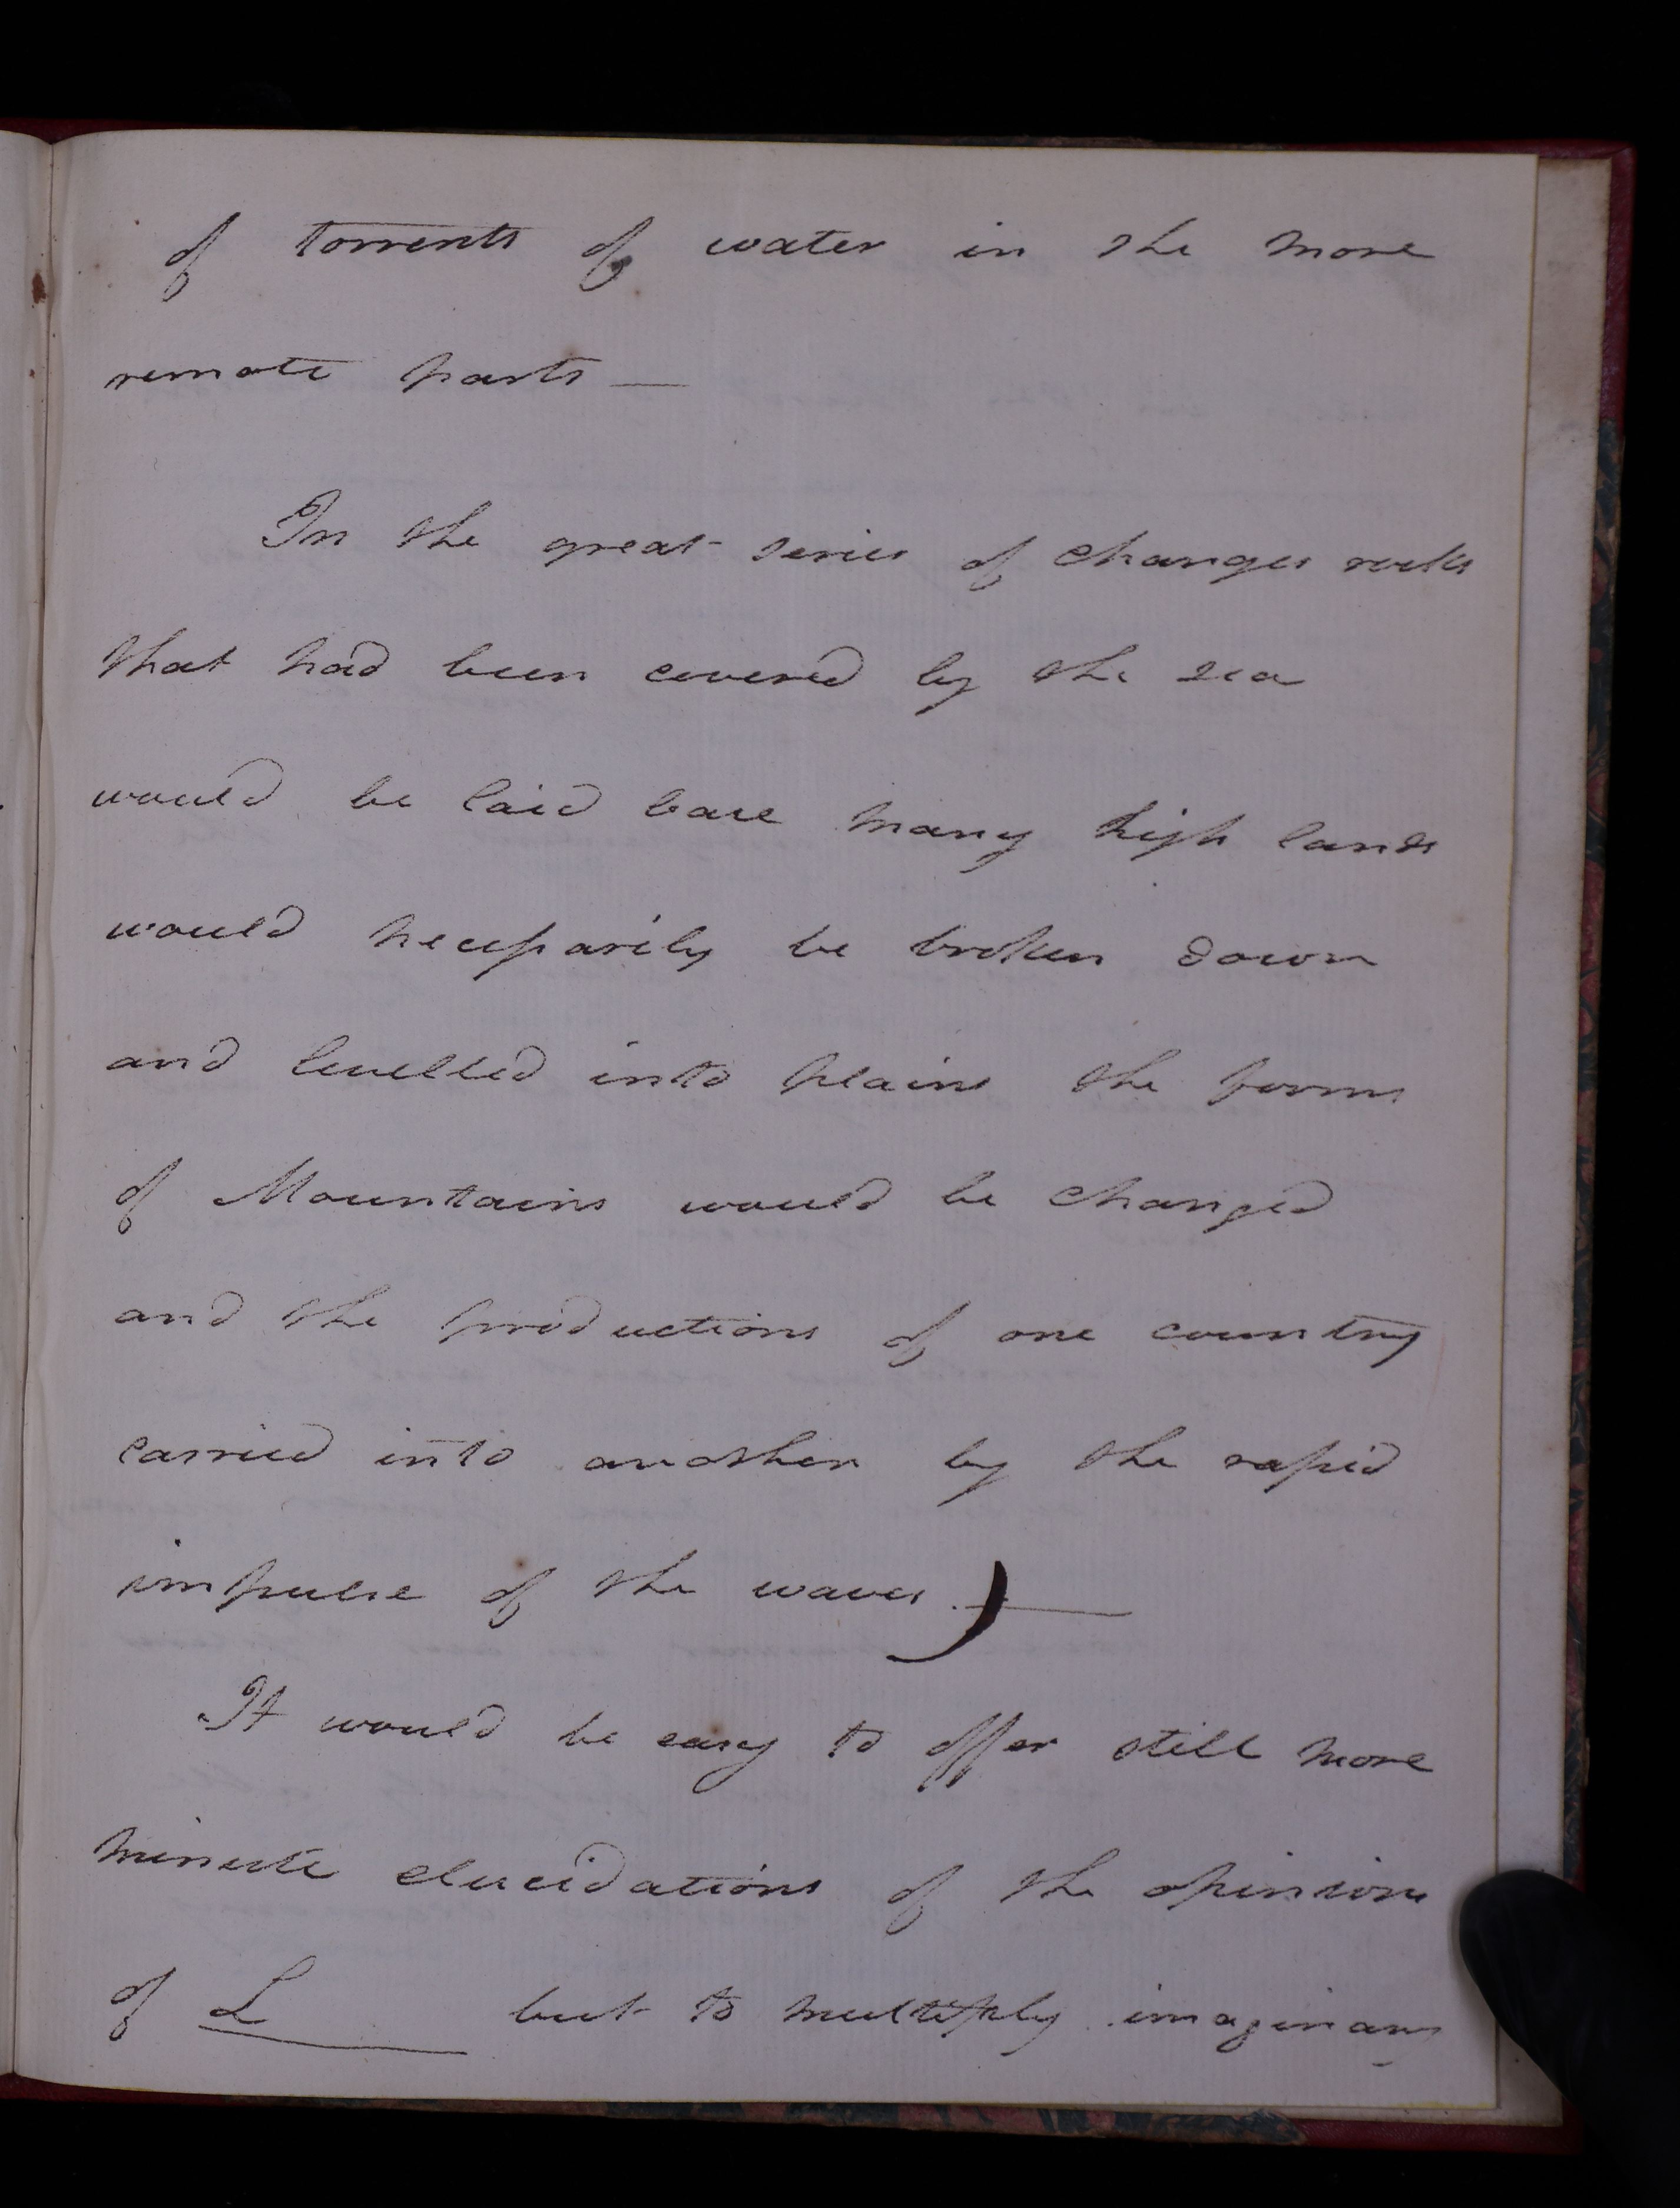 of torrents of water in the more
remote parts —
In the great series of changes rocks
that had been covered by the sea
would be laid bare many high lands
would necessarily be broken down
and levelled into plains the forms
of Mountains would be changed
and the productions of one country
carried into another by the rapid
impulse of the waves. —)
It would be easy to offer still more
minute elucidations of the opinions
of L____ but to multiply imaginary